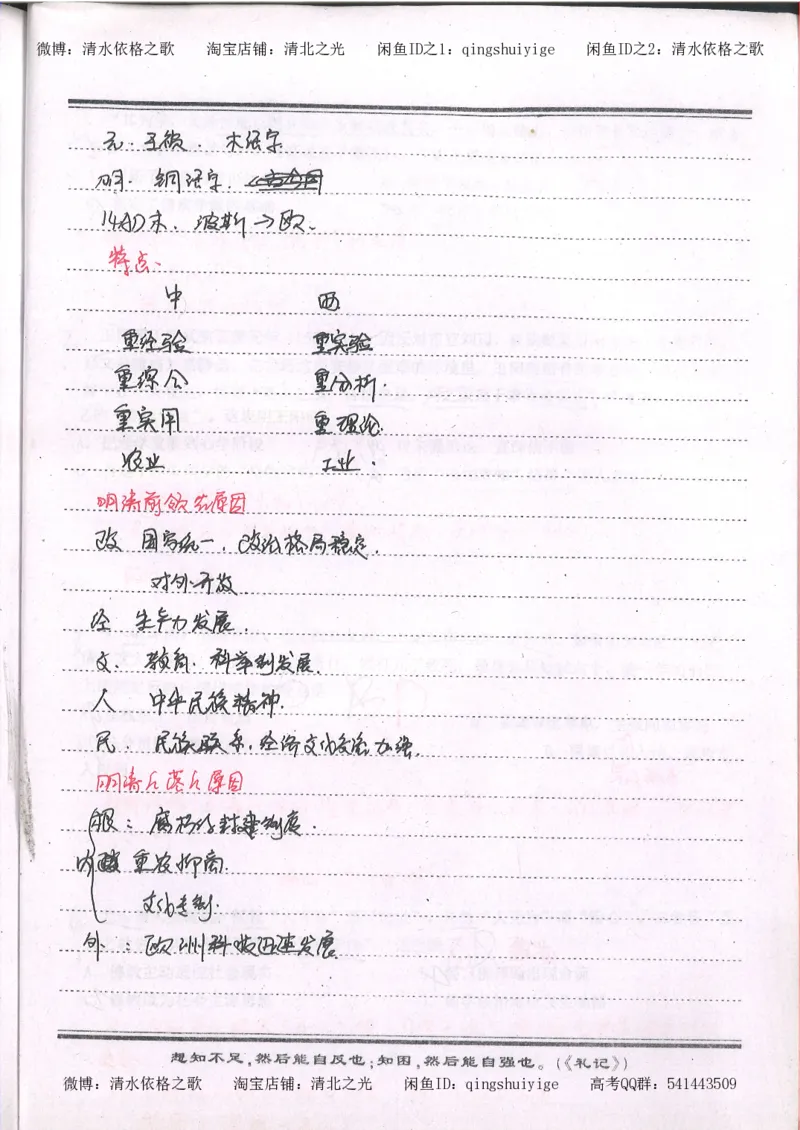 微博：清水依格之歌 淘宝店铺：清北之光 闲鱼ID之1：qingshuiyige 闲鱼ID之2：清水依格之歌
元：王祯．木活字
明：铜活字．
14AD末．波斯→欧．
特点．
中 西
重经验 重实验
重综合 重分析．
重实用 重理论．
农业 工业．
明清前领先原因
政 国家统一．政治格局稳定．
对外开放．
经 生产力发展．
文： 教育．科举制发展．
人 中华民族精神．
民： 民族联系．经济文化交流加强．
明清后落后原因
根：腐朽的封建制度．
内 重农抑商．
文化专制．
外：欧洲科技迅速发展
想知不足，然后能自反也；知困，然后能自强也。（《礼记》）
微博：清水依格之歌 淘宝店铺：清北之光 闲鱼ID：qingshuiyige 高考QQ群：541443509